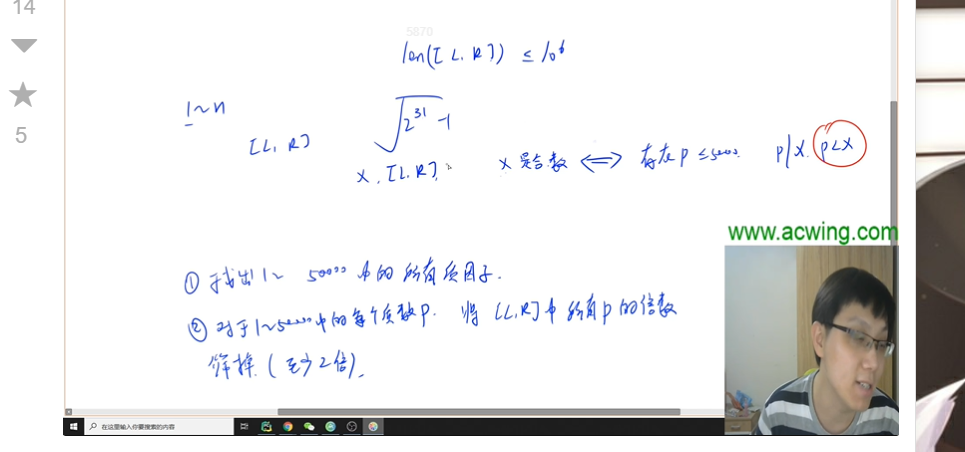 14
5870
len([L, R]) ≤ 10⁶
1~n
[L, R]
√(2³¹-1)
x, [L, R],
x 是合数 ⟺ 存在 p ≤ 50000 p|x, p<x
www.acwing.com
① 找出 1~ 50000 中的所有质因子.
② 对于 1~50000 中的每个质数 p. 将 [L,R] 中所有 p 的倍数
筛掉 (至少2倍).
5
在这里输入你要搜索的内容